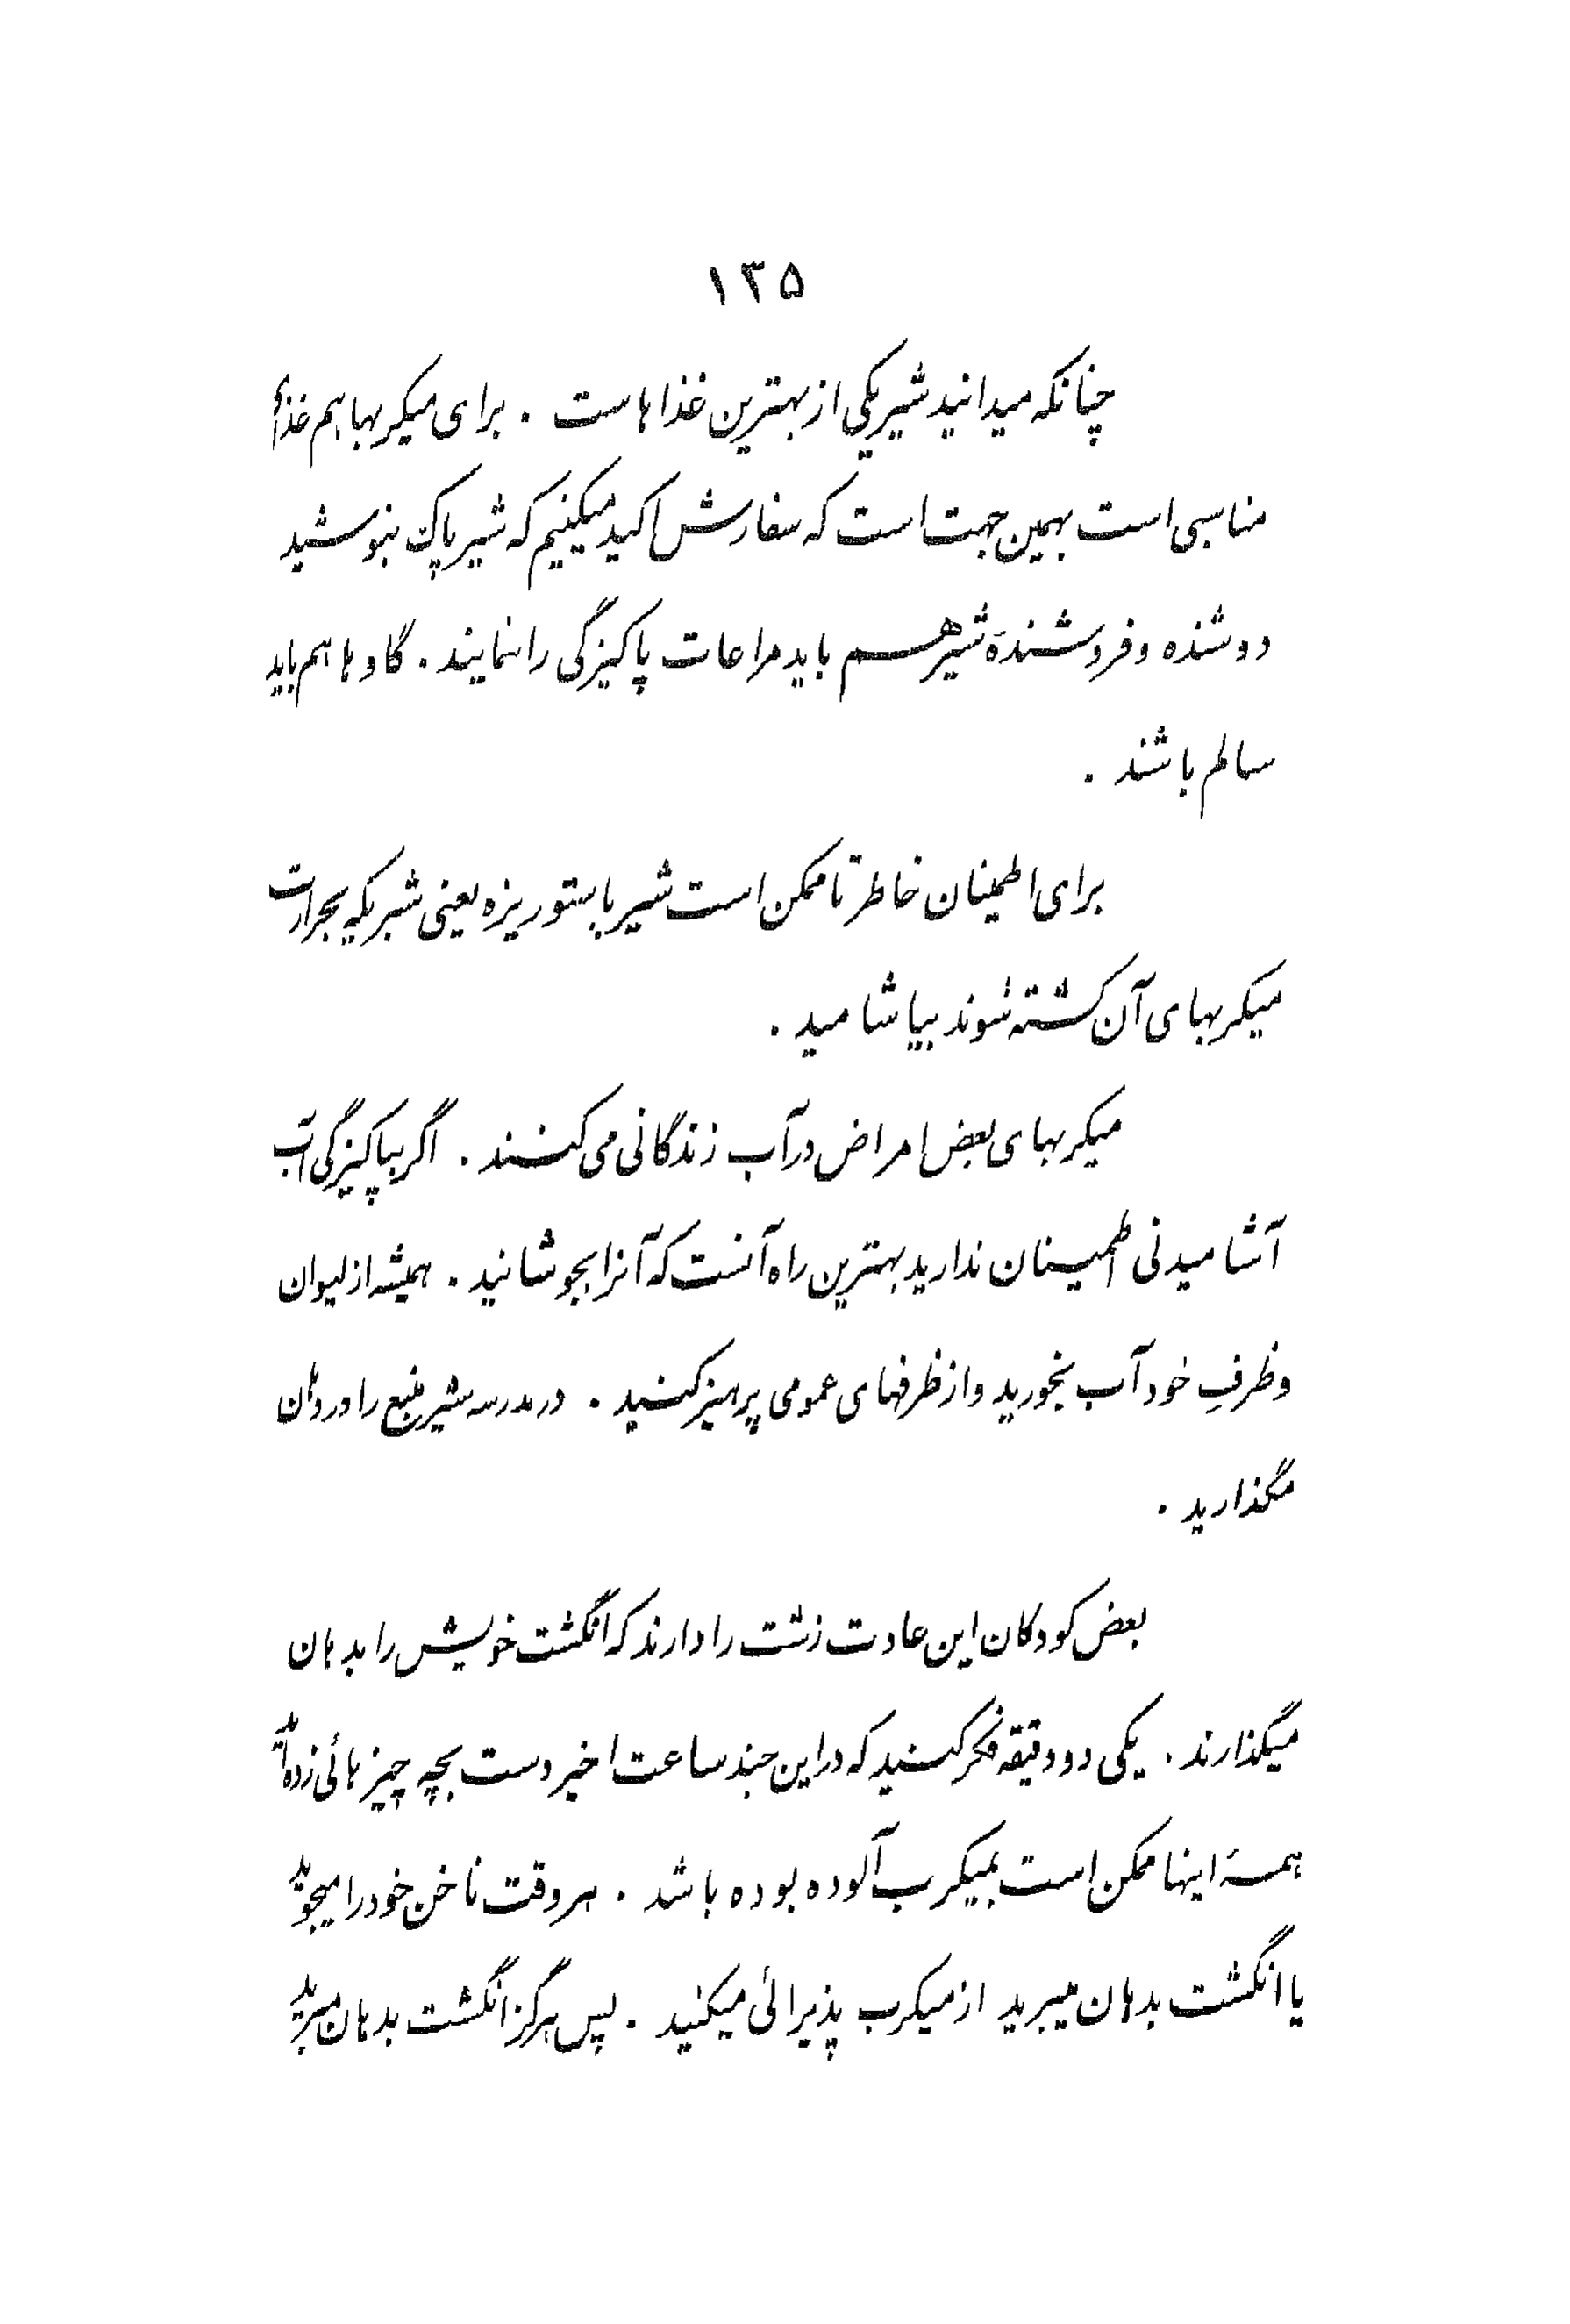 ۱۳۵
چنانکه میدانید شیر یکی از بهترین غذاهاست . برای میکربها هم غذای
مناسبی است بهمین جهت است که سفارش اکید میکنیم که شیر پاک بنوشید
دوشنده و فروشندهٔ شیر هم باید مراعات پاکیزگی را نمایند . گاوها هم باید
سالم باشند .
برای اطمینان خاطر تا ممکن است شیر پاستوریزه یعنی شیریکه بحرارت
میکربهای آن کشته شوند بیاشامید .
میکربهای بعض امراض در آب زندگانی می کنند . اگر بپاکیزگی آب
آشامیدنی اطمینان ندارید بهترین راه آنست که آنرا بجوشانید . همیشه از لیوان
و ظرفِ خود آب بخورید و از ظرفهای عمومی پرهیز کنید . در مدرسه شیر منبع را در دهان
مگذارید .
بعض کودکان این عادت زشت را دارند که انگشت خویش را بدهان
میگذارند . یکی دو دقیقه فکر کنید که در این چند ساعت اخیر دست بچه چیز هائی زده‌اید
همهٔ اینها ممکن است بمیکرب آلوده بوده باشد . هر وقت ناخن خود را میجوید
یا انگشت بدهان میبرید از میکرب پذیرائی میکنید . پس هرگز انگشت بدهان مبرید